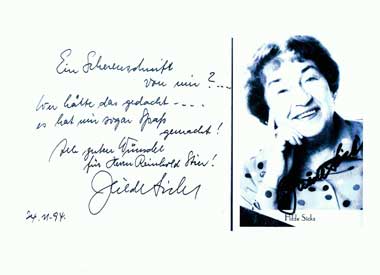 Ein Scherenschnitt
von mir ?...
Wer hätte das gedacht - - - -
es hat mir sogar Spaß
gemacht!
Alle guten Wünsche
für Herrn Reinhold Stier!
Hilde Sicks
24.11.94.
Hilde Sicks
Hilde Sicks